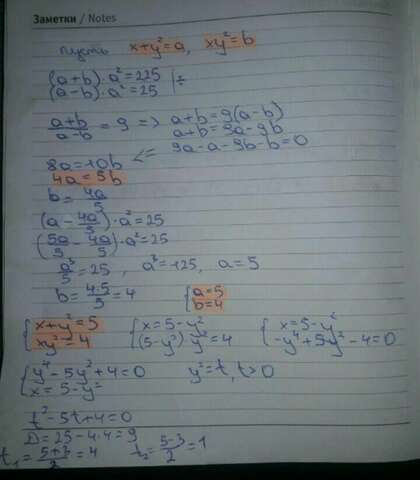 Заметки / Notes
пусть x+y²=a, xy²=b
(a+b)·a²=225 | ÷
(a-b)·a²=25
(a+b)/(a-b)=9 => a+b=9(a-b)
a+b=9a-9b
8a=10b <= 9a-a-9b-b=0
4a=5b
b=4a/5
(a-4a/5)·a²=25
(5a/5-4a/5)·a²=25
a³/5=25, a³=125, a=5
b=4·5/5=4 {a=5
b=4
{x+y²=5 {x=5-y² {x=5-y²
xy²=4 (5-y²)·y²=4 -y⁴+5y²-4=0
{y⁴-5y²+4=0 y²=t, t>0
x=5-y²
t²-5t+4=0
D=25-4·4=9
t₁=(5+3)/2=4 t₂=(5-3)/2=1